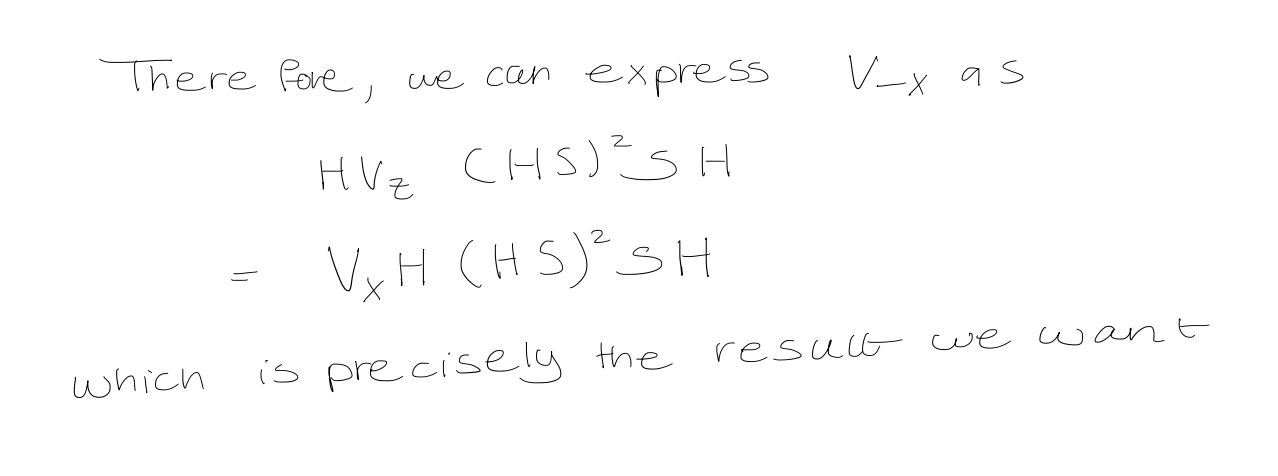 Therefore, we can express V_{-x} as
HV_z (HS)²SH
= V_xH (HS)²SH
which is precisely the result we want